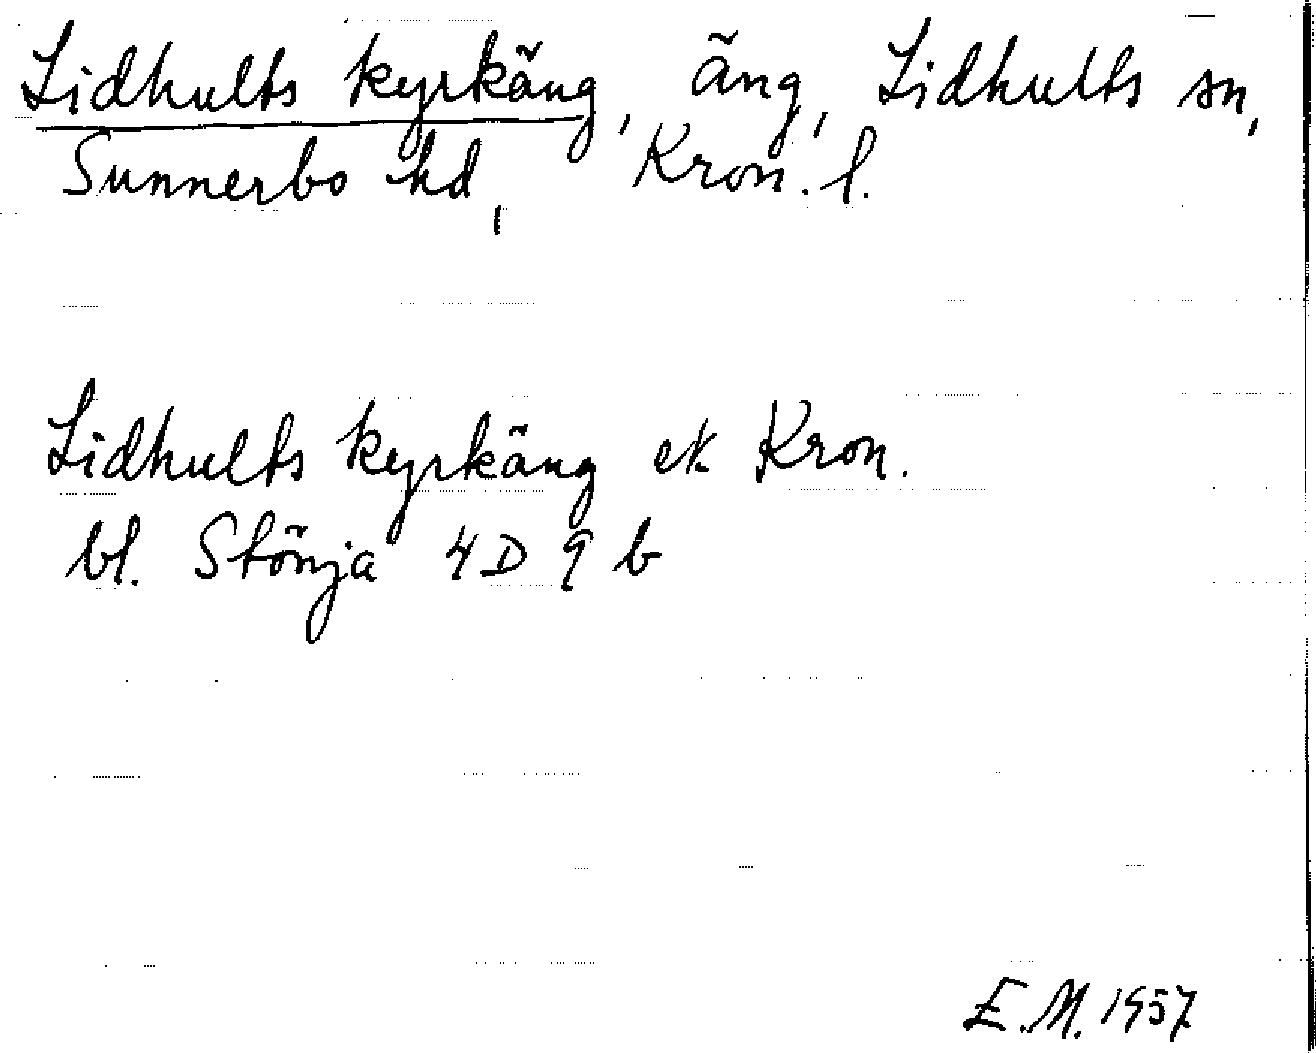 Lidhults kyrkäng, äng, Lidhults sn,
Sunnerbo hd, Kron. l.
Lidhults kyrkäng ek Kron.
bl. Stönja 4 D 9 b
E.M. 1957